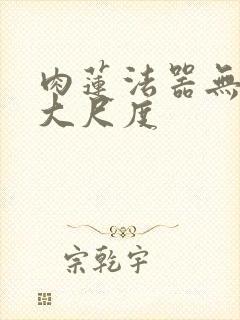 肉蓮法器無
大尺度
宗乾宇